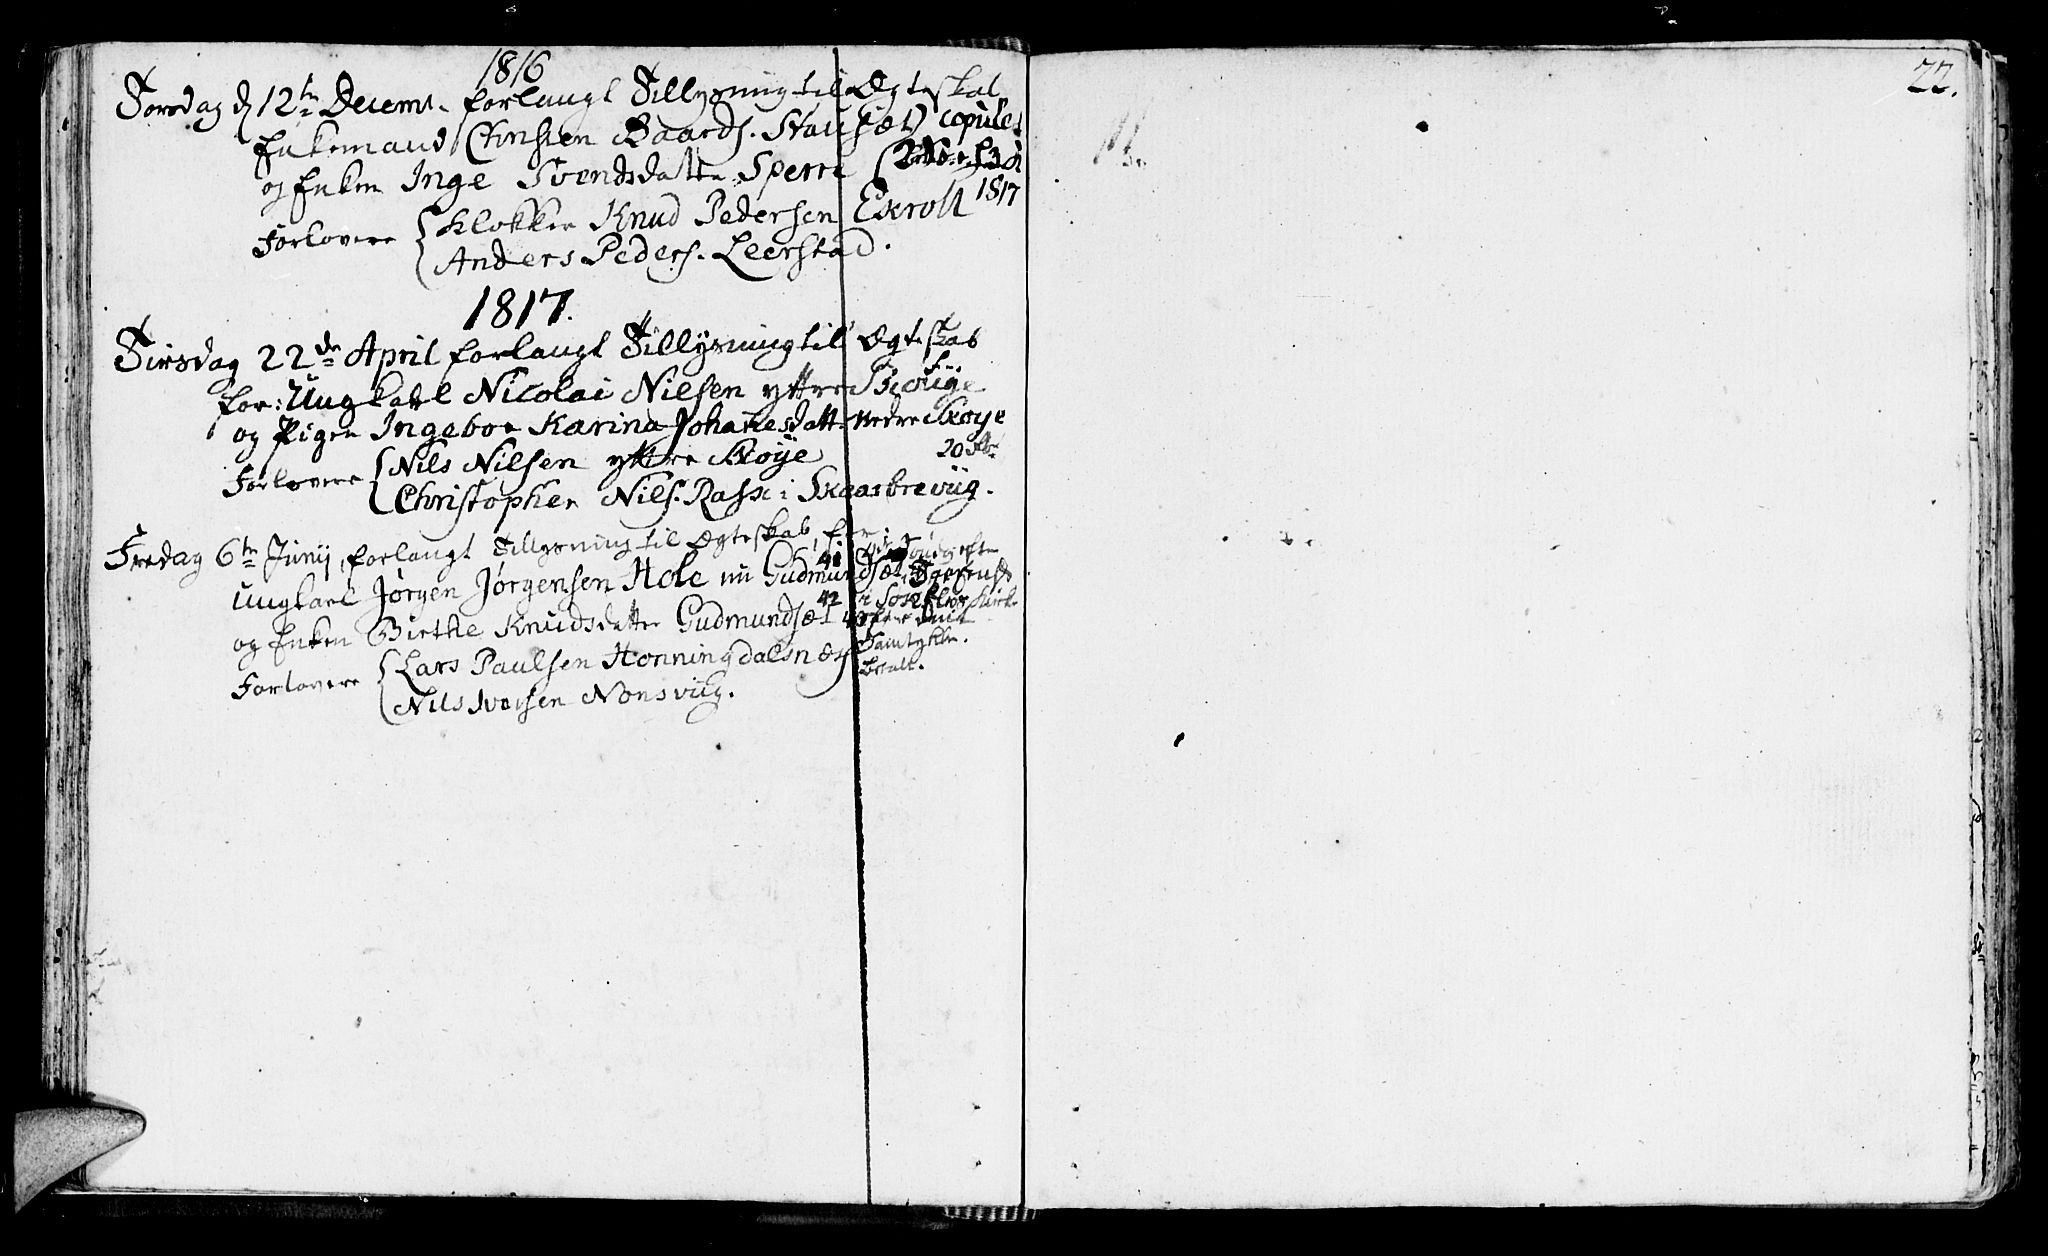 1816
Torsdag d 12te Decemb. forlangt Tillysning til Ægteskab
Enkemand Christen Baards. Stausæt copuleret
og Enken Inge Svendsdatter Sperre
1817
Forlovere Klokker Knud Pedersen Exroll
Anders Peders. Leerstad.
1817.
Tirsdag 22de April forlangt Tillysning til Ægteskab
for: Ungkarl Nicolai Nielsen yttre
og Pigen Ingebor Karina Johannesdatt. nedre Skoye
Forlovere Nils Nilsen yttre Skoye 20
Christopher Nils. Rasx i Skaarbreviig.
Fredag 6te Junij, forlangt Tillysning til Ægteskab, for
Ungkarl Jørgen Jørgensen Hole nu Gudmundsæt
og Enken Birthe Knudsdatter Gudmundsæt
42 i
Samtykke.
Forlovere Lars Paulsen Honningdalsnæs
betalt.
Nils Iversen Nonsviig.
22.